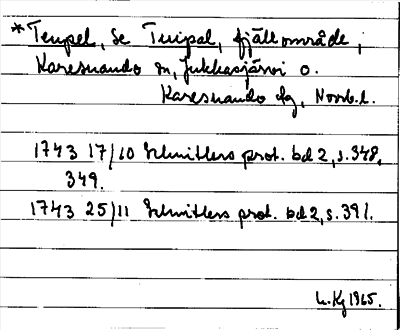 *Teupel, se Tuipal, fjällområde,
Karesuando sn, Jukkasjärvi o.
Karesuando tlg, Norrb. l.
1743 17/10 Schnitlers prot. bd 2, s. 348,
349.
1743 25/11 Schnitlers prot. bd 2, s. 391.
L. Kg 1965.